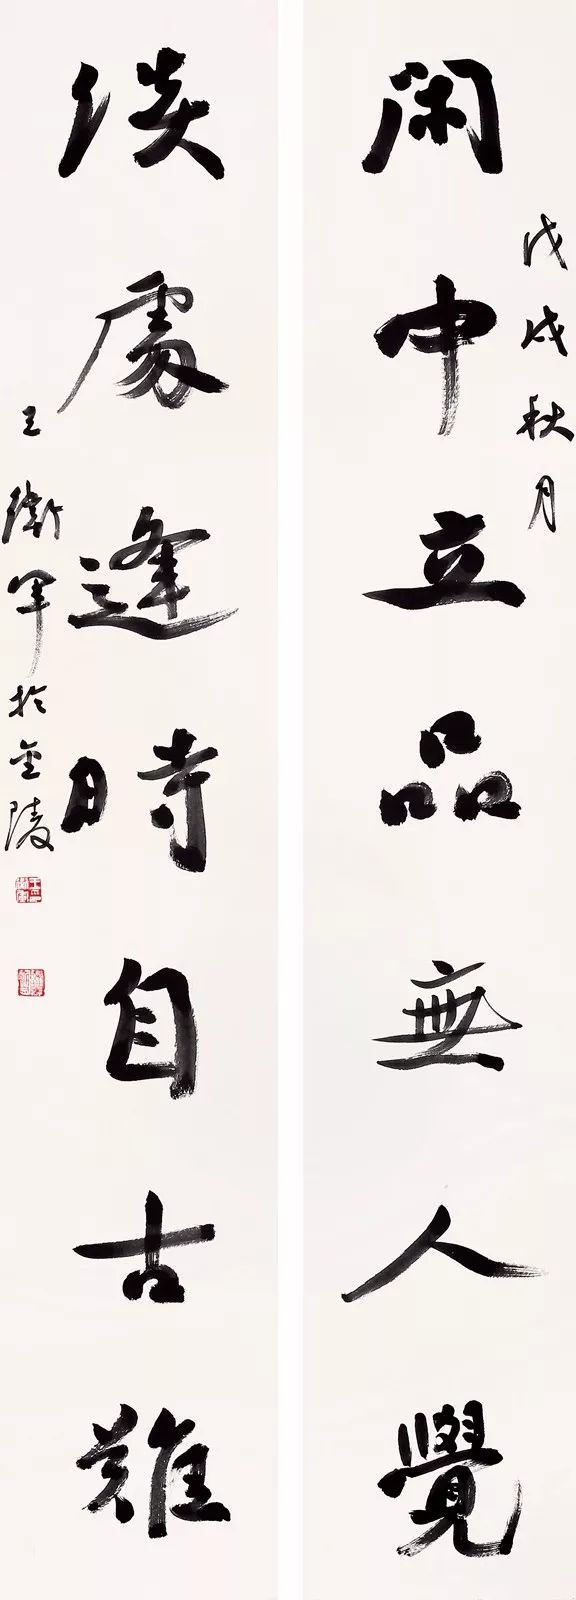 戊戌秋月
閑中立品無人覺
淡處逢時自古難
王衛軍於金陵